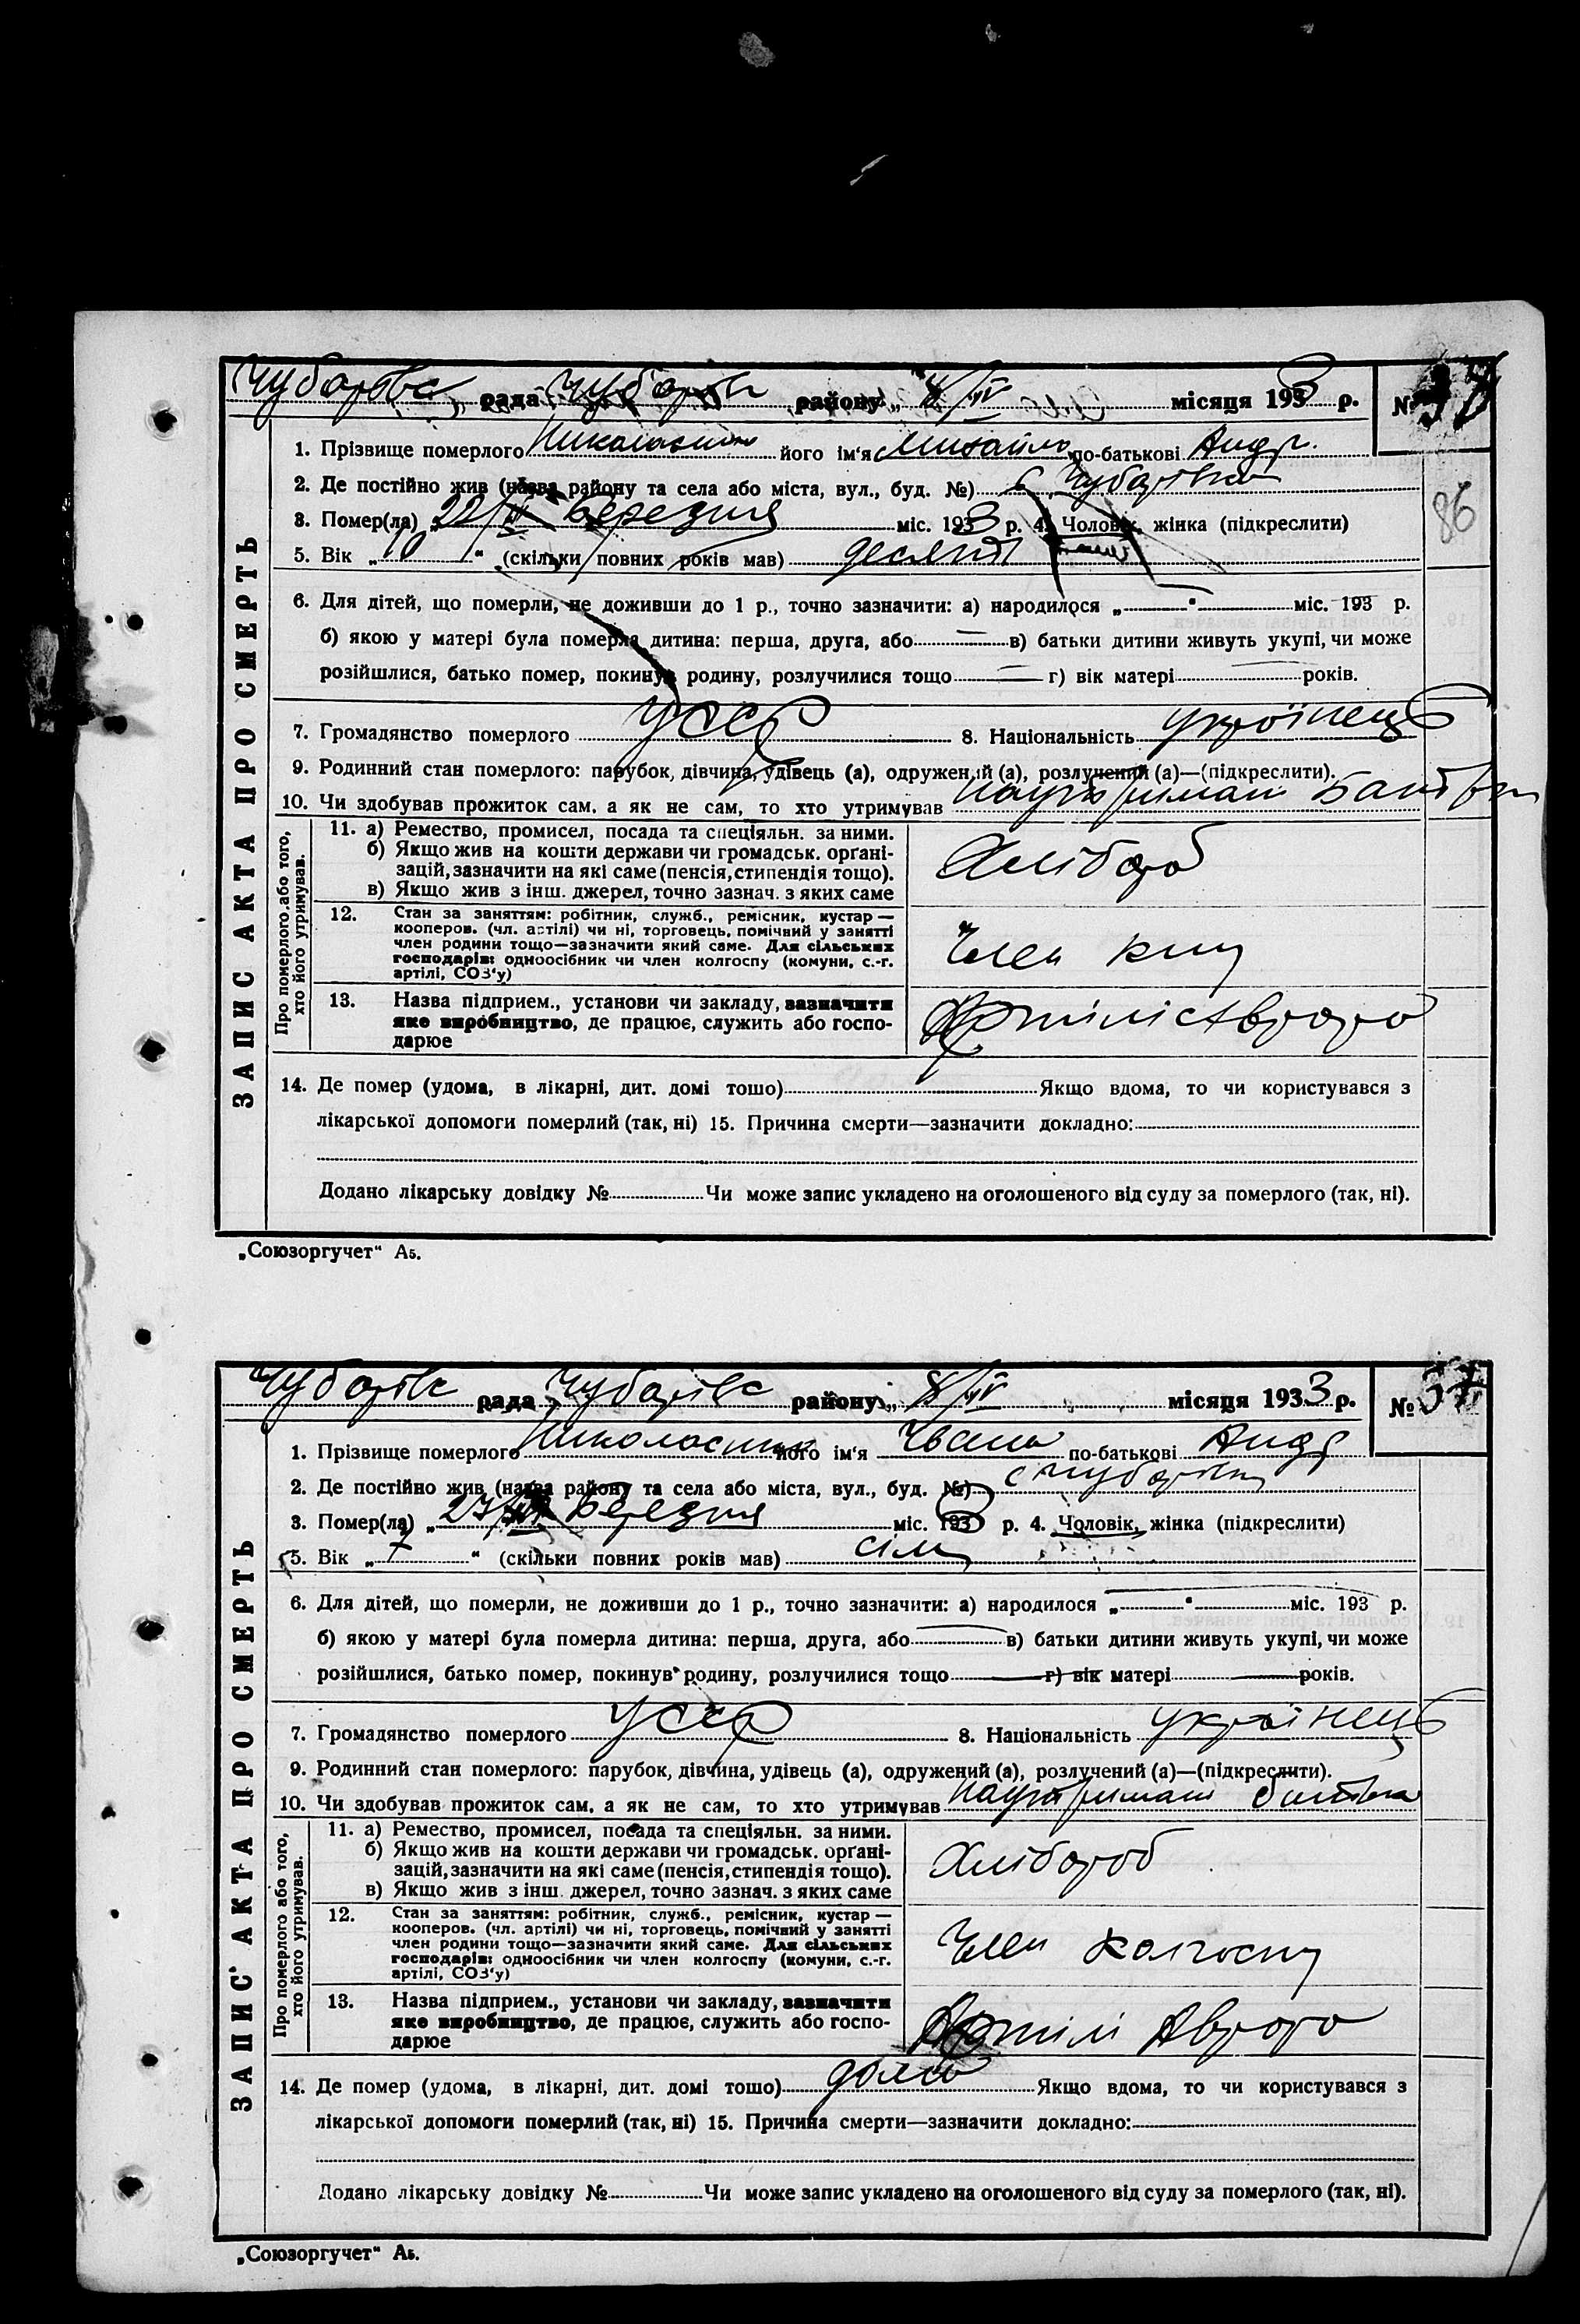 Чубарівс рада Чубарівс району „8/IV місяця 1933 р. №
1. Прізвище померлого його ім'я Михайло по-батькові Андр.
2. Де постійно жив (назва району та села або міста, вул., буд. №) с Чубарівка
3. Помер(ла) „22/III березня міс. 1933 р. 4. Чоловік, жінка (підкреслити)
5. Вік „10 " (скільки повних років мав) десять
86
6. Для дітей, що померли, не доживши до 1 р., точно зазначити: а) народилося „ " міс. 193 р.
б) якою у матері була померла дитина: перша, друга, або в) батьки дитини живуть укупі, чи може
розійшлися, батько помер, покинув родину, розлучилися тощо г) вік матері років.
7. Громадянство померлого УССР 8. Національність українець
9. Родинний стан померлого: парубок, дівчина, удівець (а), одружений (а), розлучений (а)—(підкреслити).
10. Чи здобував прожиток сам, а як не сам, то хто утримував
ЗАПИС АКТА ПРО СМЕРТЬ
Про померлого або того,
хто його утримував.
11. а) Ремество, промисел, посада та спеціяльн. за ними.
б) Якщо жив на кошти держави чи громадськ. орґані-
зацій, зазначити на які саме (пенсія, стипендія тощо).
в) Якщо жив з інш. джерел, точно зазнач. з яких саме
Хлібороб
12. Стан за заняттям: робітник, служб., ремісник, кустар —
кооперов. (чл. артілі) чи ні, торговець, помічний у занятті
член родини тощо—зазначити який саме. Для сільських
господарів: одноосібник чи член колгоспу (комуни, с.-г.
артілі, СОЗ'у)
Член
13. Назва підприєм., установи чи закладу, зазначити
яке виробництво, де працює, служить або госпо-
дарює
Артілі Аврора
14. Де помер (удома, в лікарні, дит. домі тощо) Якщо вдома, то чи користувався з
лікарської допомоги померлий (так, ні) 15. Причина смерти—зазначити докладно:
Додано лікарську довідку № Чи може запис укладено на оголошеного від суду за померлого (так, ні).
„Союзоргучет" А5.
Чубарівс рада Чубарівс району „8/IV місяця 1933 р. № 37
1. Прізвище померлого його ім'я Іван по-батькові Андр
2. Де постійно жив (назва району та села або міста, вул., буд. №) с Чубарівка
3. Помер(ла) „27/III березня міс. 1933 р. 4. Чоловік, жінка (підкреслити)
5. Вік „7 " (скільки повних років мав) сім
6. Для дітей, що померли, не доживши до 1 р., точно зазначити: а) народилося „ " міс. 193 р.
б) якою у матері була померла дитина: перша, друга, або в) батьки дитини живуть укупі, чи може
розійшлися, батько помер, покинув родину, розлучилися тощо г) вік матері років.
7. Громадянство померлого УССР 8. Національність українець
9. Родинний стан померлого: парубок, дівчина, удівець (а), одружений (а), розлучений (а)—(підкреслити).
10. Чи здобував прожиток сам, а як не сам, то хто утримував
ЗАПИС АКТА ПРО СМЕРТЬ
Про померлого або того,
хто його утримував.
11. а) Ремество, промисел, посада та спеціяльн. за ними.
б) Якщо жив на кошти держави чи громадськ. орґані-
зацій, зазначити на які саме (пенсія, стипендія тощо).
в) Якщо жив з інш. джерел, точно зазнач. з яких саме
Хлібороб
12. Стан за заняттям: робітник, служб., ремісник, кустар —
кооперов. (чл. артілі) чи ні, торговець, помічний у занятті
член родини тощо—зазначити який саме. Для сільських
господарів: одноосібник чи член колгоспу (комуни, с.-г.
артілі, СОЗ'у)
Член колгоспу
13. Назва підприєм., установи чи закладу, зазначити
яке виробництво, де працює, служить або госпо-
дарює
Артілі Аврора
14. Де помер (удома, в лікарні, дит. домі тощо) дома Якщо вдома, то чи користувався з
лікарської допомоги померлий (так, ні) 15. Причина смерти—зазначити докладно:
Додано лікарську довідку № Чи може запис укладено на оголошеного від суду за померлого (так, ні).
„Союзоргучет" А5.